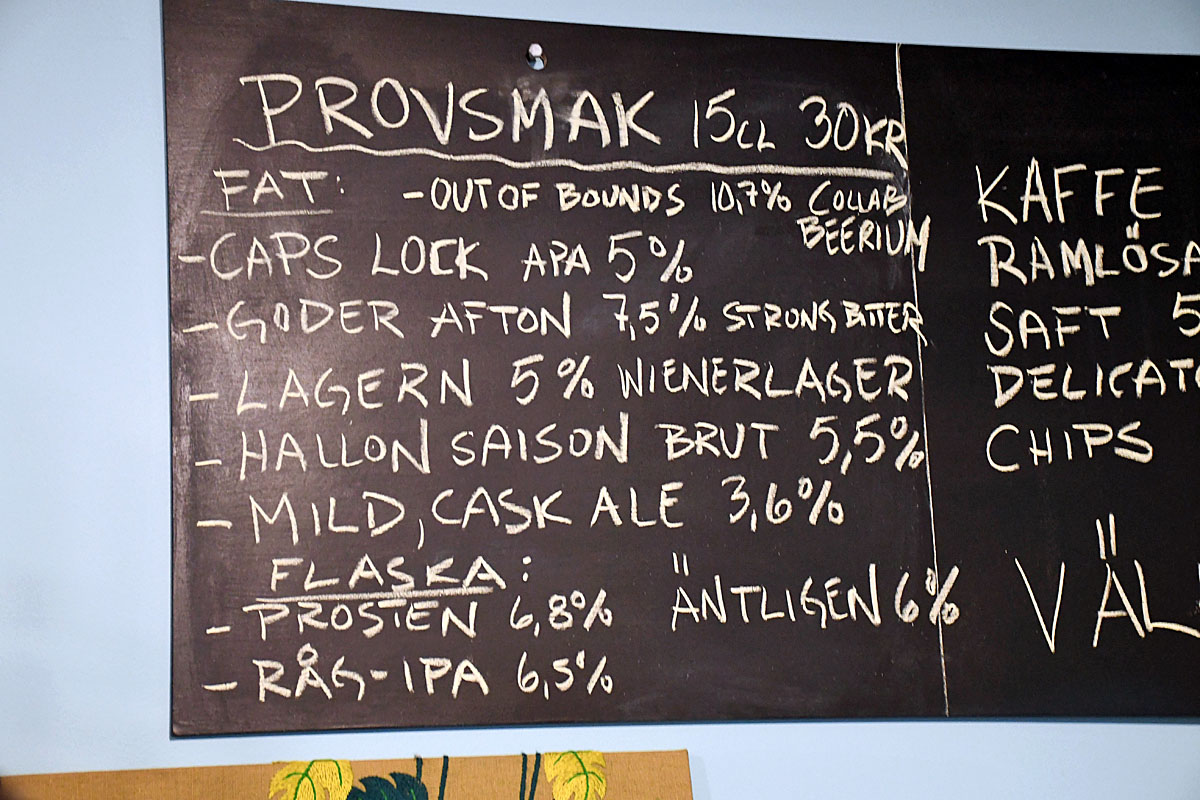 PROVSMAK 15CL 30KR
FAT: -OUT OF BOUNDS 10,7% COLLAB
BEERIUM
-CAPS LOCK APA 5%
-GODER AFTON 7,5% STRONG BITTER
-LAGERN 5% WIENERLAGER
-HALLON SAISON BRUT 5,5%
-MILD, CASK ALE 3,6%
FLASKA:
-PROSTEN 6,8% ÄNTLIGEN 6%
-RÅG-IPA 6,5%
KAFFE
RAMLÖSA
SAFT 5
DELICATO
CHIPS
VÄL